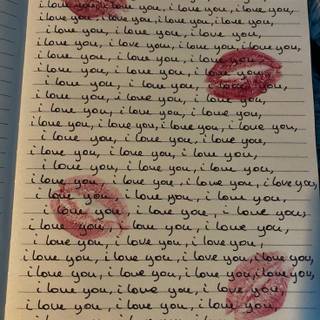 i love you, i love you, i love you, i love you,
i love you, i love you, i love you, i love you,
i love you, i love you, i love you,
i love you, i love you, i love you, i love you,
i love you, i love you, i love you,
i love you, i love you, i love you
i love you, i love you, i love you,
i love you, i love you, i love you,
i love you, i love you, i love you,
i love you, i love you, i love you, i love you,
i love you, i love you, i love you,
i love you, i love you, i love you,
i love you, i love you, i love you,
i love you, i love you, i love you, i love you,
i love you, i love you, i love you,
i love you, i love you, i love you,
i love you, i love you, i love you,
i love you, i love you, i love you,
i love you, i love you, i love you, i love you,
i love you, i love you, i love you, i love you,
i love you, i love you, i love you,
i love you, i love you, i love you,